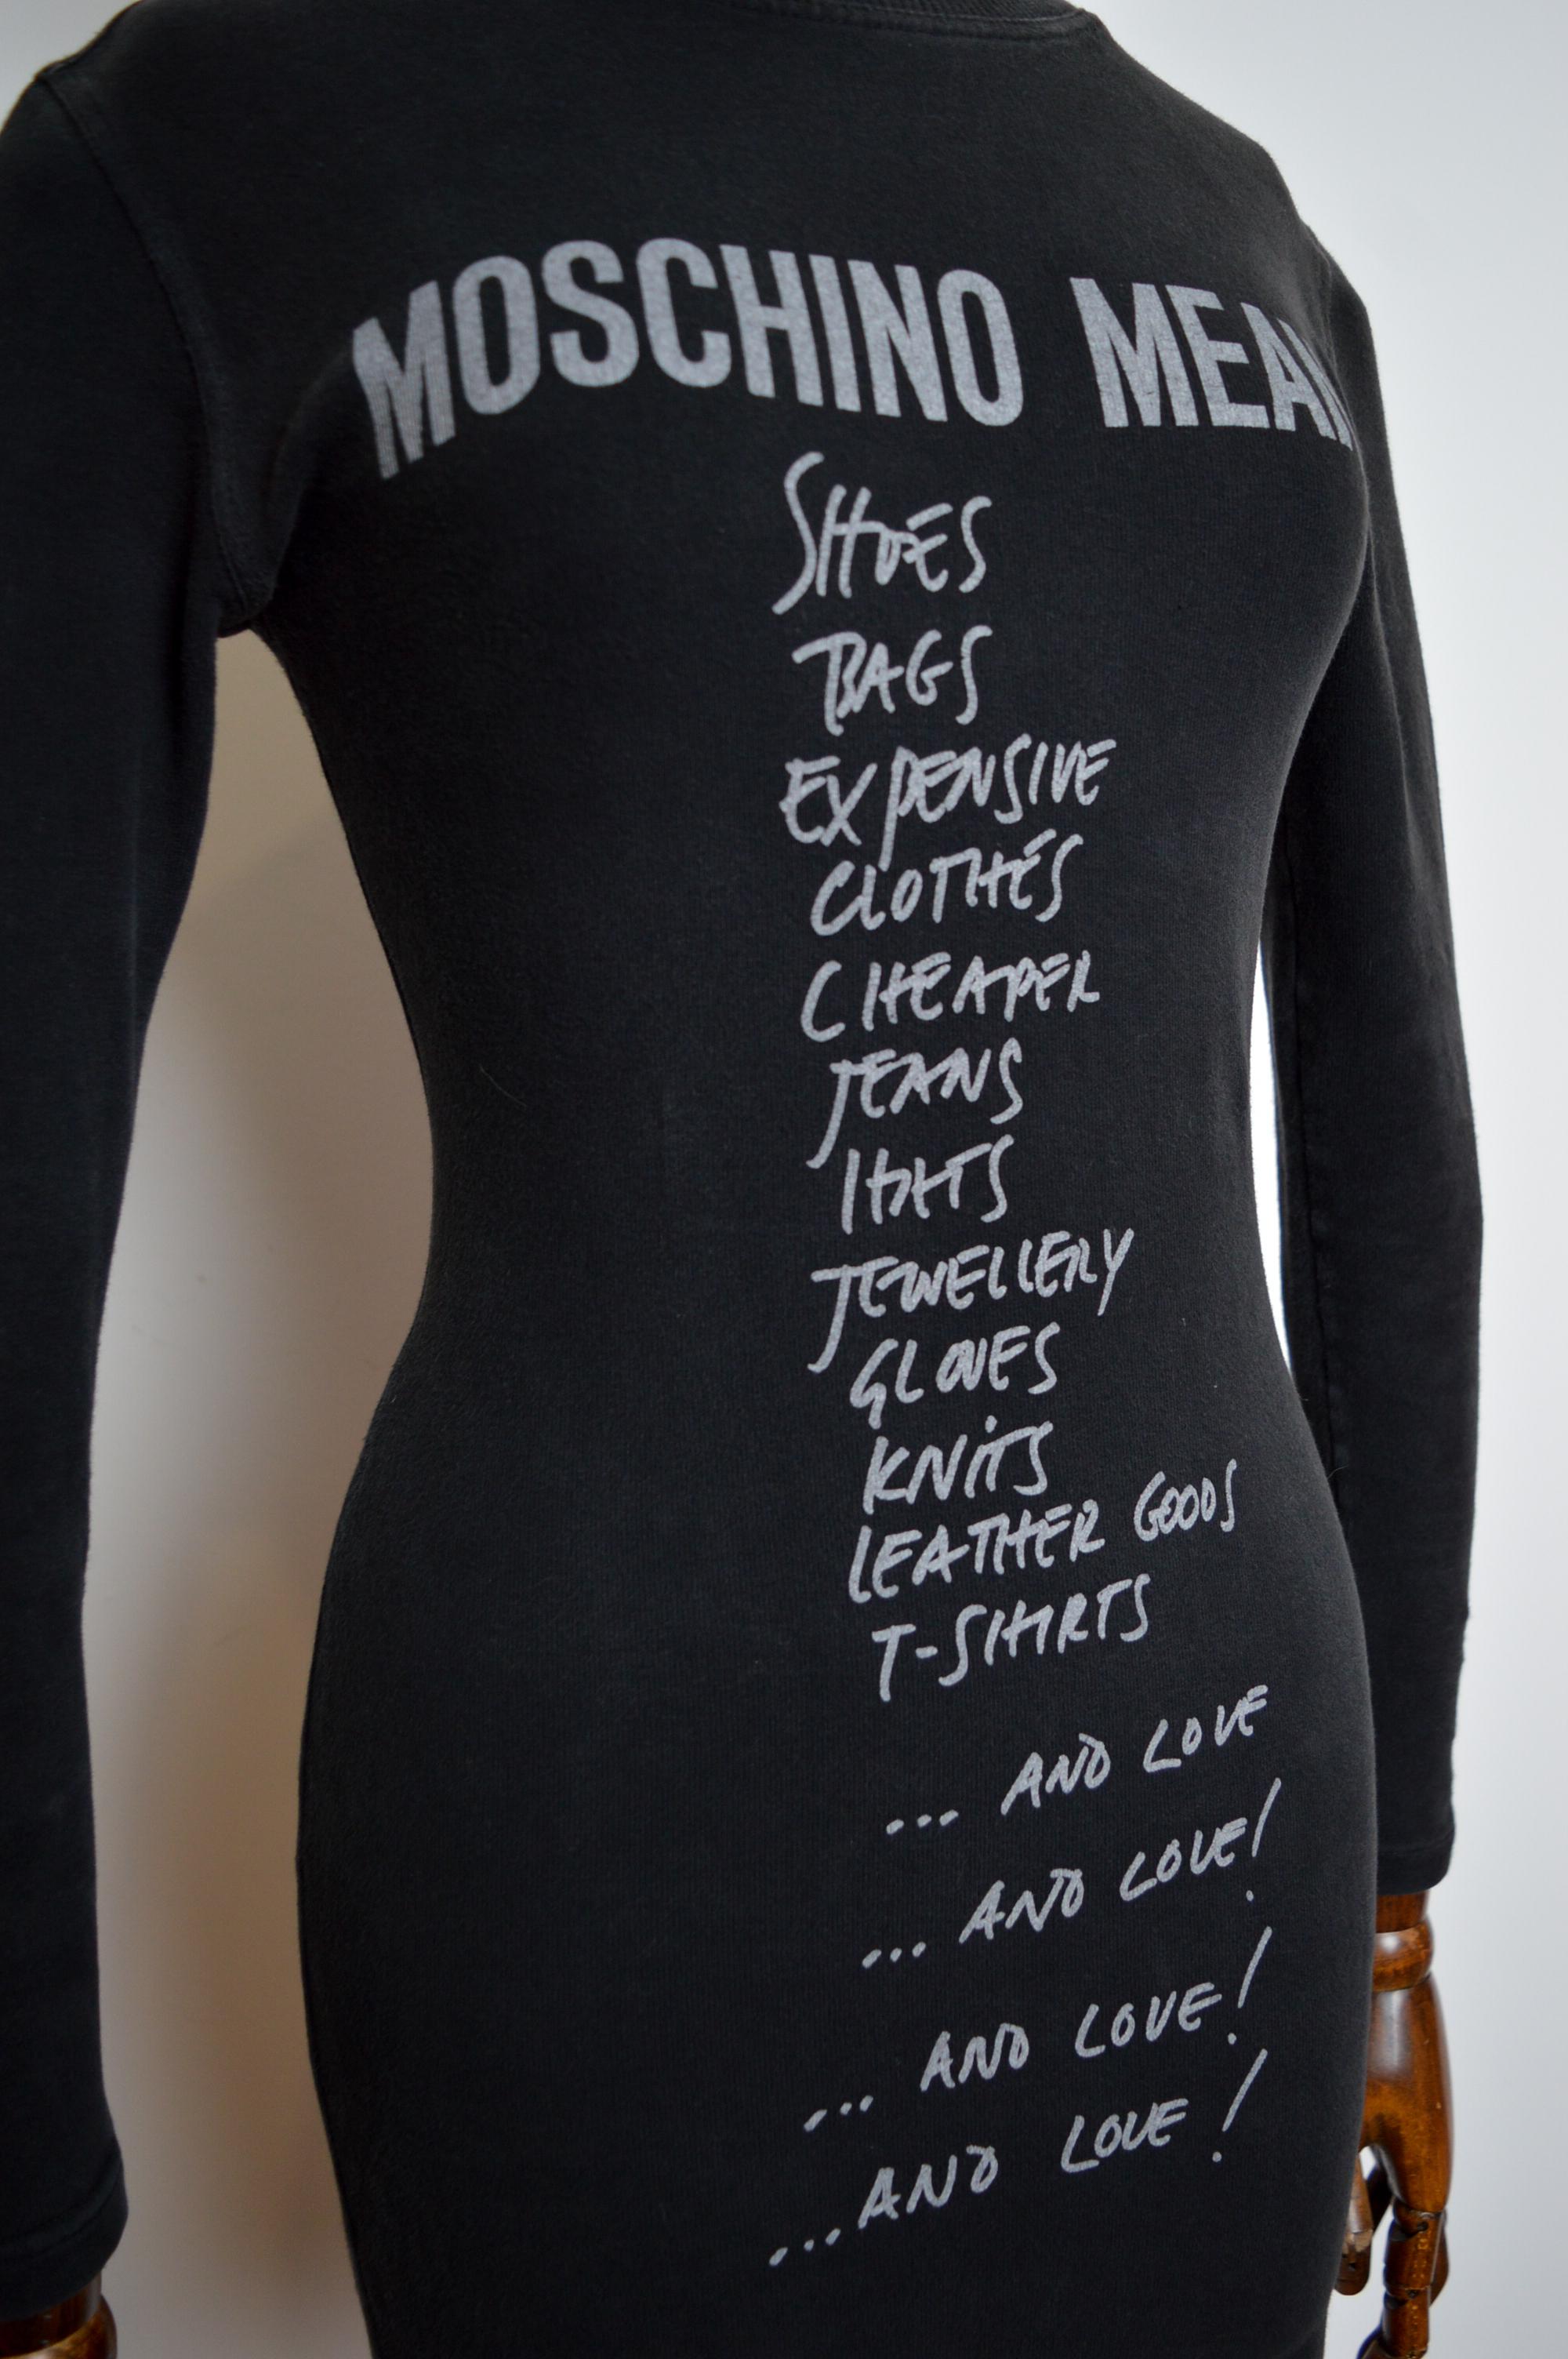 MOSCHINO MEAN
SHOES
BAGS
EXPENSIVE
CLOTHES
CHEAPER
JEANS
HATS
JEWELLERY
GLOVES
KNITS
LEATHER GOODS
T-SHIRTS
... AND LOVE
... AND LOVE!
... AND LOVE!
... AND LOVE!